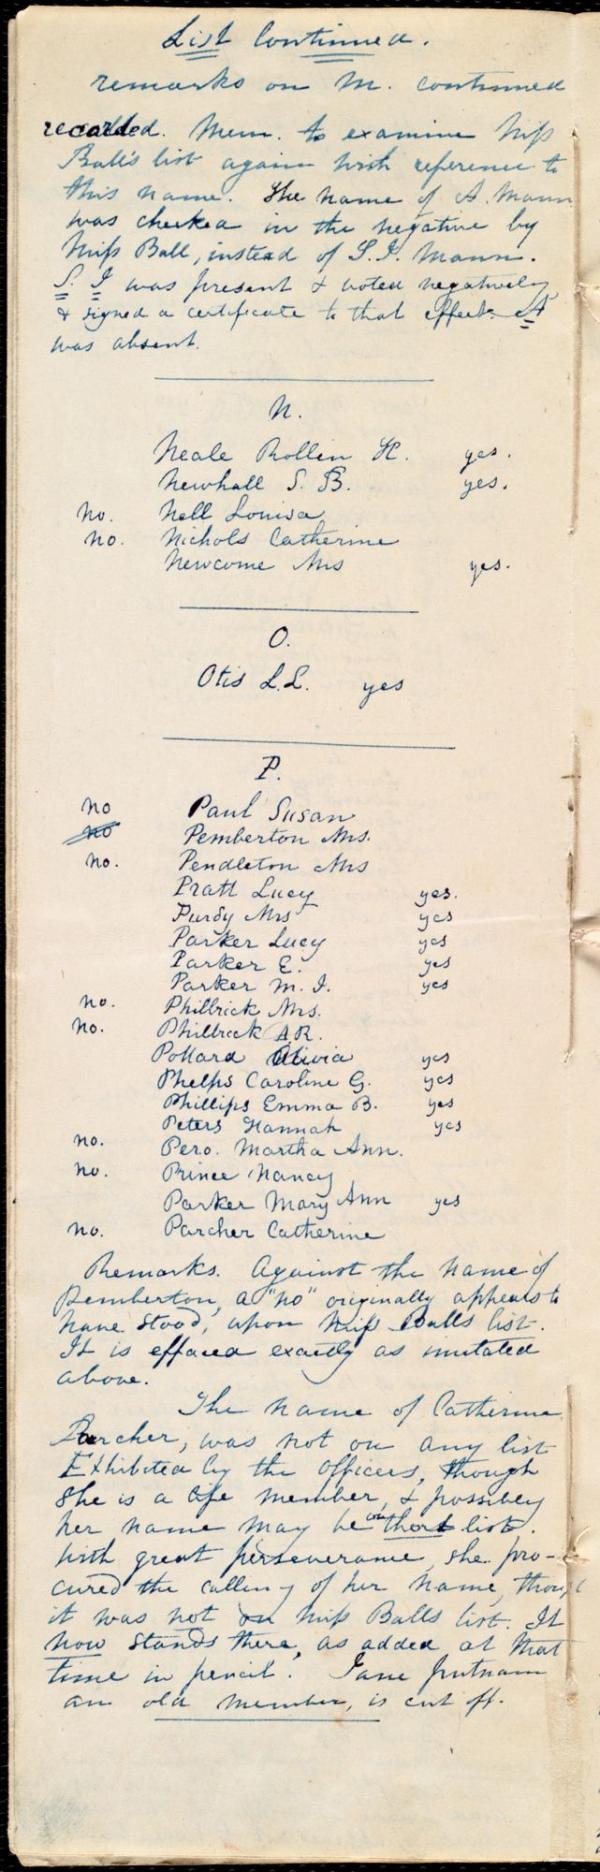 List Continued.
remarks on M. continued
recorded. Mem. to examine Miss
Ball's list again with reference to
this name. The name of A. Mann
was checked in the negative by
Miss Ball, instead of S. I. Mann.
S. I was present & voted negatively
& signed a certificate to that effect. A
was absent.
N.
Neale Rollin H. yes.
Newhall S. B. yes.
no. Nell Louisa
no. Nichols Catherine
Newcome Mrs yes.
O.
Otis L.L. yes
P.
no Paul Susan
no Pemberton Mrs.
no. Pendleton Mrs
Pratt Lucy yes.
Purdy Mrs yes
Parker Lucy yes
Parker E. yes
Parker M. I. yes
no. Philbrick Mrs.
no. Philbrick A R.
Pollard Olivia yes
Phelps Caroline G. yes
Phillips Emma B. yes
Peters Hannah yes
no. Pero. Martha Ann.
no. Prince Nancy
Parker Mary Ann yes
no. Parcher Catherine
Remarks. Against the name of
Pemberton, a "no" originally appears to
have stood, upon Miss Balls list.
It is effaced exactly as imitated
above.
The name of Catherine
Parcher, was not on any list
Exhibited by the officers, though
she is a life member, & possibly
her name may be on that list.
With great perseverance, she pro-
cured the calling of her name, though
it was not on Miss Balls list. It
now stands there, as added at that
time in pencil. Jane Putnam
an old member, is cut off.